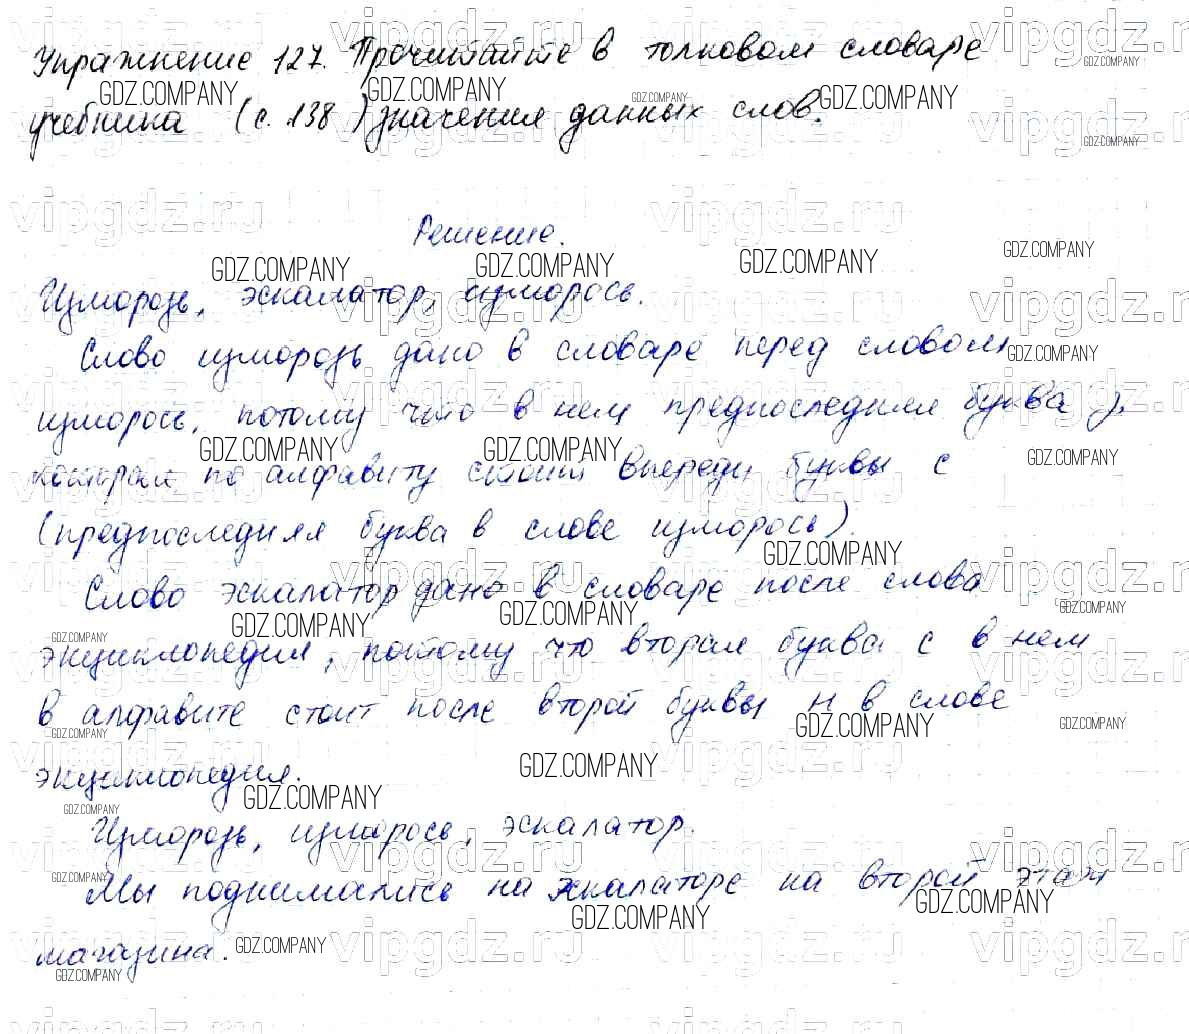 Упражнение 127. Прочитайте в толковом словаре
учебника (с. 138) значения данных слов.
Решение.
Изморозь, эскалатор, изморось.
Слово изморозь дано в словаре перед словом
изморось, потому что в нем предпоследняя буква з,
которая по алфавиту стоит впереди буквы с
(предпоследняя буква в слове изморось).
Слово эскалатор дано в словаре после слова
энциклопедия, потому что вторая буква с в нем
в алфавите стоит после второй буквы н в слове
энциклопедия.
Изморозь, изморось, эскалатор.
Мы поднимались на эскалаторе на второй этаж
магазина.
vipgdz.ru
GDZ.COMPANY